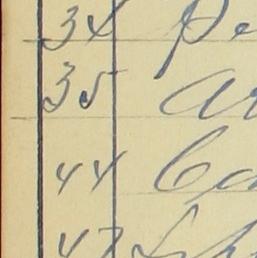 34 Pe
35 Ar
44 Co
47